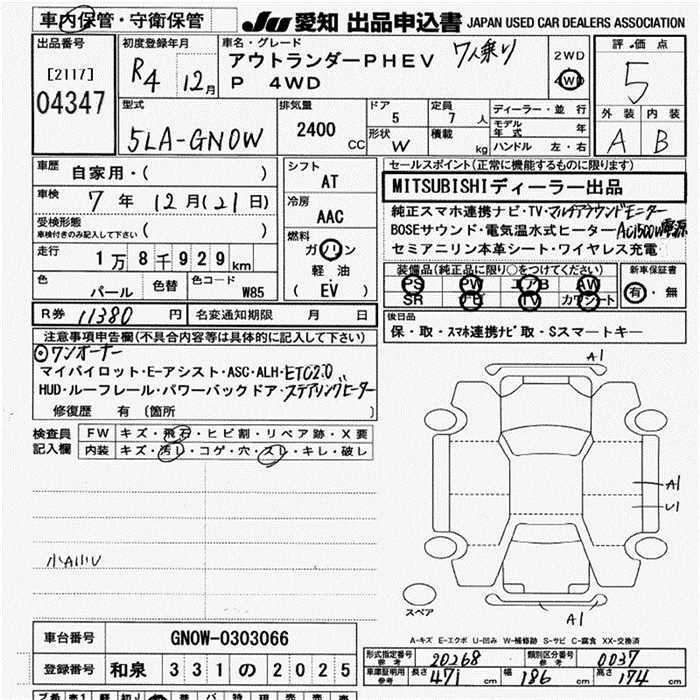 車内保管・守衛保管
JU 愛知 出品申込書 JAPAN USED CAR DEALERS ASSOCIATION
出品番号
[2117]
04347
初度登録年月
R4 12月
車名・グレード
アウトランダーPHEV 7人乗り
P 4WD
2WD
4WD
評価点
5
外装 内装
A B
型式
5LA-GN0W
排気量
2400 CC
ドア
5
形状
W
定員
7 人
積載
kg
ディーラー・並行
モデル年式 年
ハンドル 左・右
車歴
自家用・( )
車検
7年 12月(21日)
受検形態
車検付きのみ記入して下さい
( )
走行
1万8千929km
色
パール
色替
色コード
W85
シフト
AT
冷房
AAC
燃料
ガソリン
軽油
(EV)
セールスポイント(正常に機能するものに限ります)
MITSUBISHIディーラー出品
純正スマホ連携ナビ・TV・マルチアラウンドモニター
BOSEサウンド・電気温水式ヒーター・AC1500W電源
セミアニリン本革シート・ワイヤレス充電
装備品(純正品に限り○をつけてください)
PS PW エアB AW
SR ナビ TV カワシート
新車保証書
有・無
R券 11380 円
名変通知期限 月 日
後日品
保・取・スマホ連携ナビ取・Sスマートキー
注意事項申告欄(不具合内容等は具体的に記入して下さい)
◎ワンオーナー
マイパイロット・E-アシスト・ASC・ALH・ETC2.0
HUD・ルーフレール・パワーバックドア・ステアリングヒーター
修復歴 有 〔箇所 〕
検査員記入欄
FW キズ・飛石・ヒビ割・リペア跡・X要
内装 キズ・汚し・コゲ・穴・スレ・キレ・破レ
小A小U
A1
A1
U1
A1
スペア
A-キズ E-エクボ U-凹み W-補修跡 S-サビ C-腐食 XX-交換済
車台番号
GN0W-0303066
登録番号
和泉 331 の 2025
形式指定番号
参考
20268
類別区分番号
参考
0037
車庫証明用
参考
長さ 471 cm 幅 186 cm 高さ 174 cm